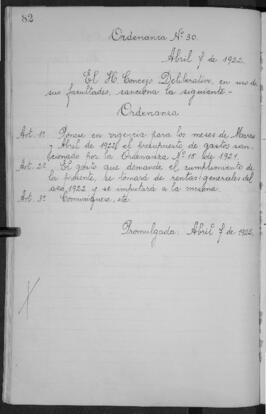 82
Ordenanza Nº 30.
Abril 7 de 1922.
El H. Concejo Deliberativo, en uso de
sus facultades, sanciona la siguiente -
Ordenanza
Art. 1º Ponese en vigencia para los meses de Marzo
y Abril de 1922 el presupuesto de gastos san-
cionado por la Ordenanza Nº 15 de 1921.
Art. 2º El gasto que demande el cumplimiento de
la presente, se tomará de rentas generales del
año 1922 y se imputará a la misma.
Art. 3º Comuniquese, etc
Promulgada: Abril 7 de 1922.